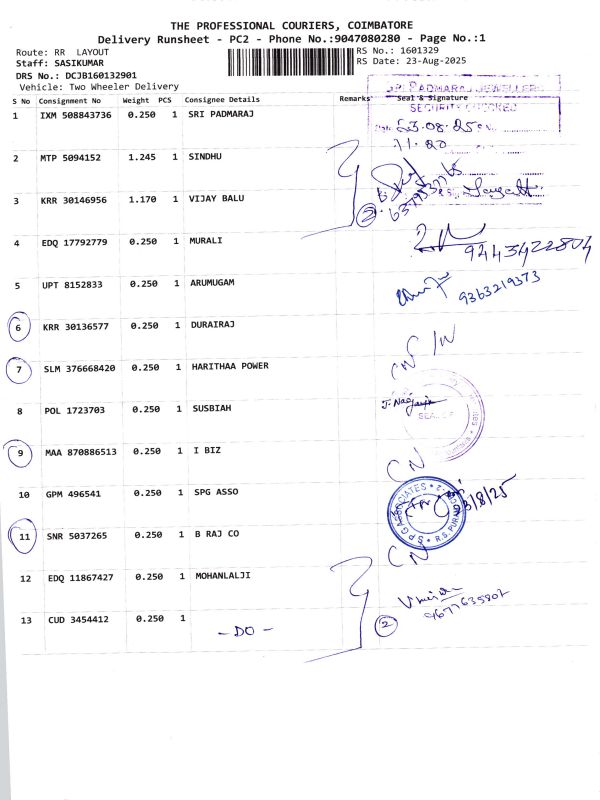 THE PROFESSIONAL COURIERS, COIMBATORE
Delivery Runsheet - PC2 - Phone No.:9047080280 - Page No.:1
Route: RR LAYOUT RS No.: 1601329
Staff: SASIKUMAR RS Date: 23-Aug-2025
DRS No.: DCJB160132901
Vehicle: Two Wheeler Delivery
SRI PADMARAJ JEWELLERS
S No Consignment No Weight PCS Consignee Details Remarks Seal & Signature
SECURITY CHECKED
1 IXM 508843736 0.250 1 SRI PADMARAJ
23.08.25
11.20
2 MTP 5094152 1.245 1 SINDHU
3 KRR 30146956 1.170 1 VIJAY BALU
2
4 EDQ 17792779 0.250 1 MURALI
9443422804
5 UPT 8152833 0.250 1 ARUMUGAM
9363219373
6 KRR 30136577 0.250 1 DURAIRAJ
CN IN
7 SLM 376668420 0.250 1 HARITHAA POWER
8 POL 1723703 0.250 1 SUSBIAH
SEAL OF
9 MAA 870886513 0.250 1 I BIZ
CN
10 GPM 496541 0.250 1 SPG ASSO
SPG ASSOCIATES
R.S. PURAM
11 SNR 5037265 0.250 1 B RAJ CO
CN
12 EDQ 11867427 0.250 1 MOHANLALJI
9677635807
13 CUD 3454412 0.250 1
- DO -
2